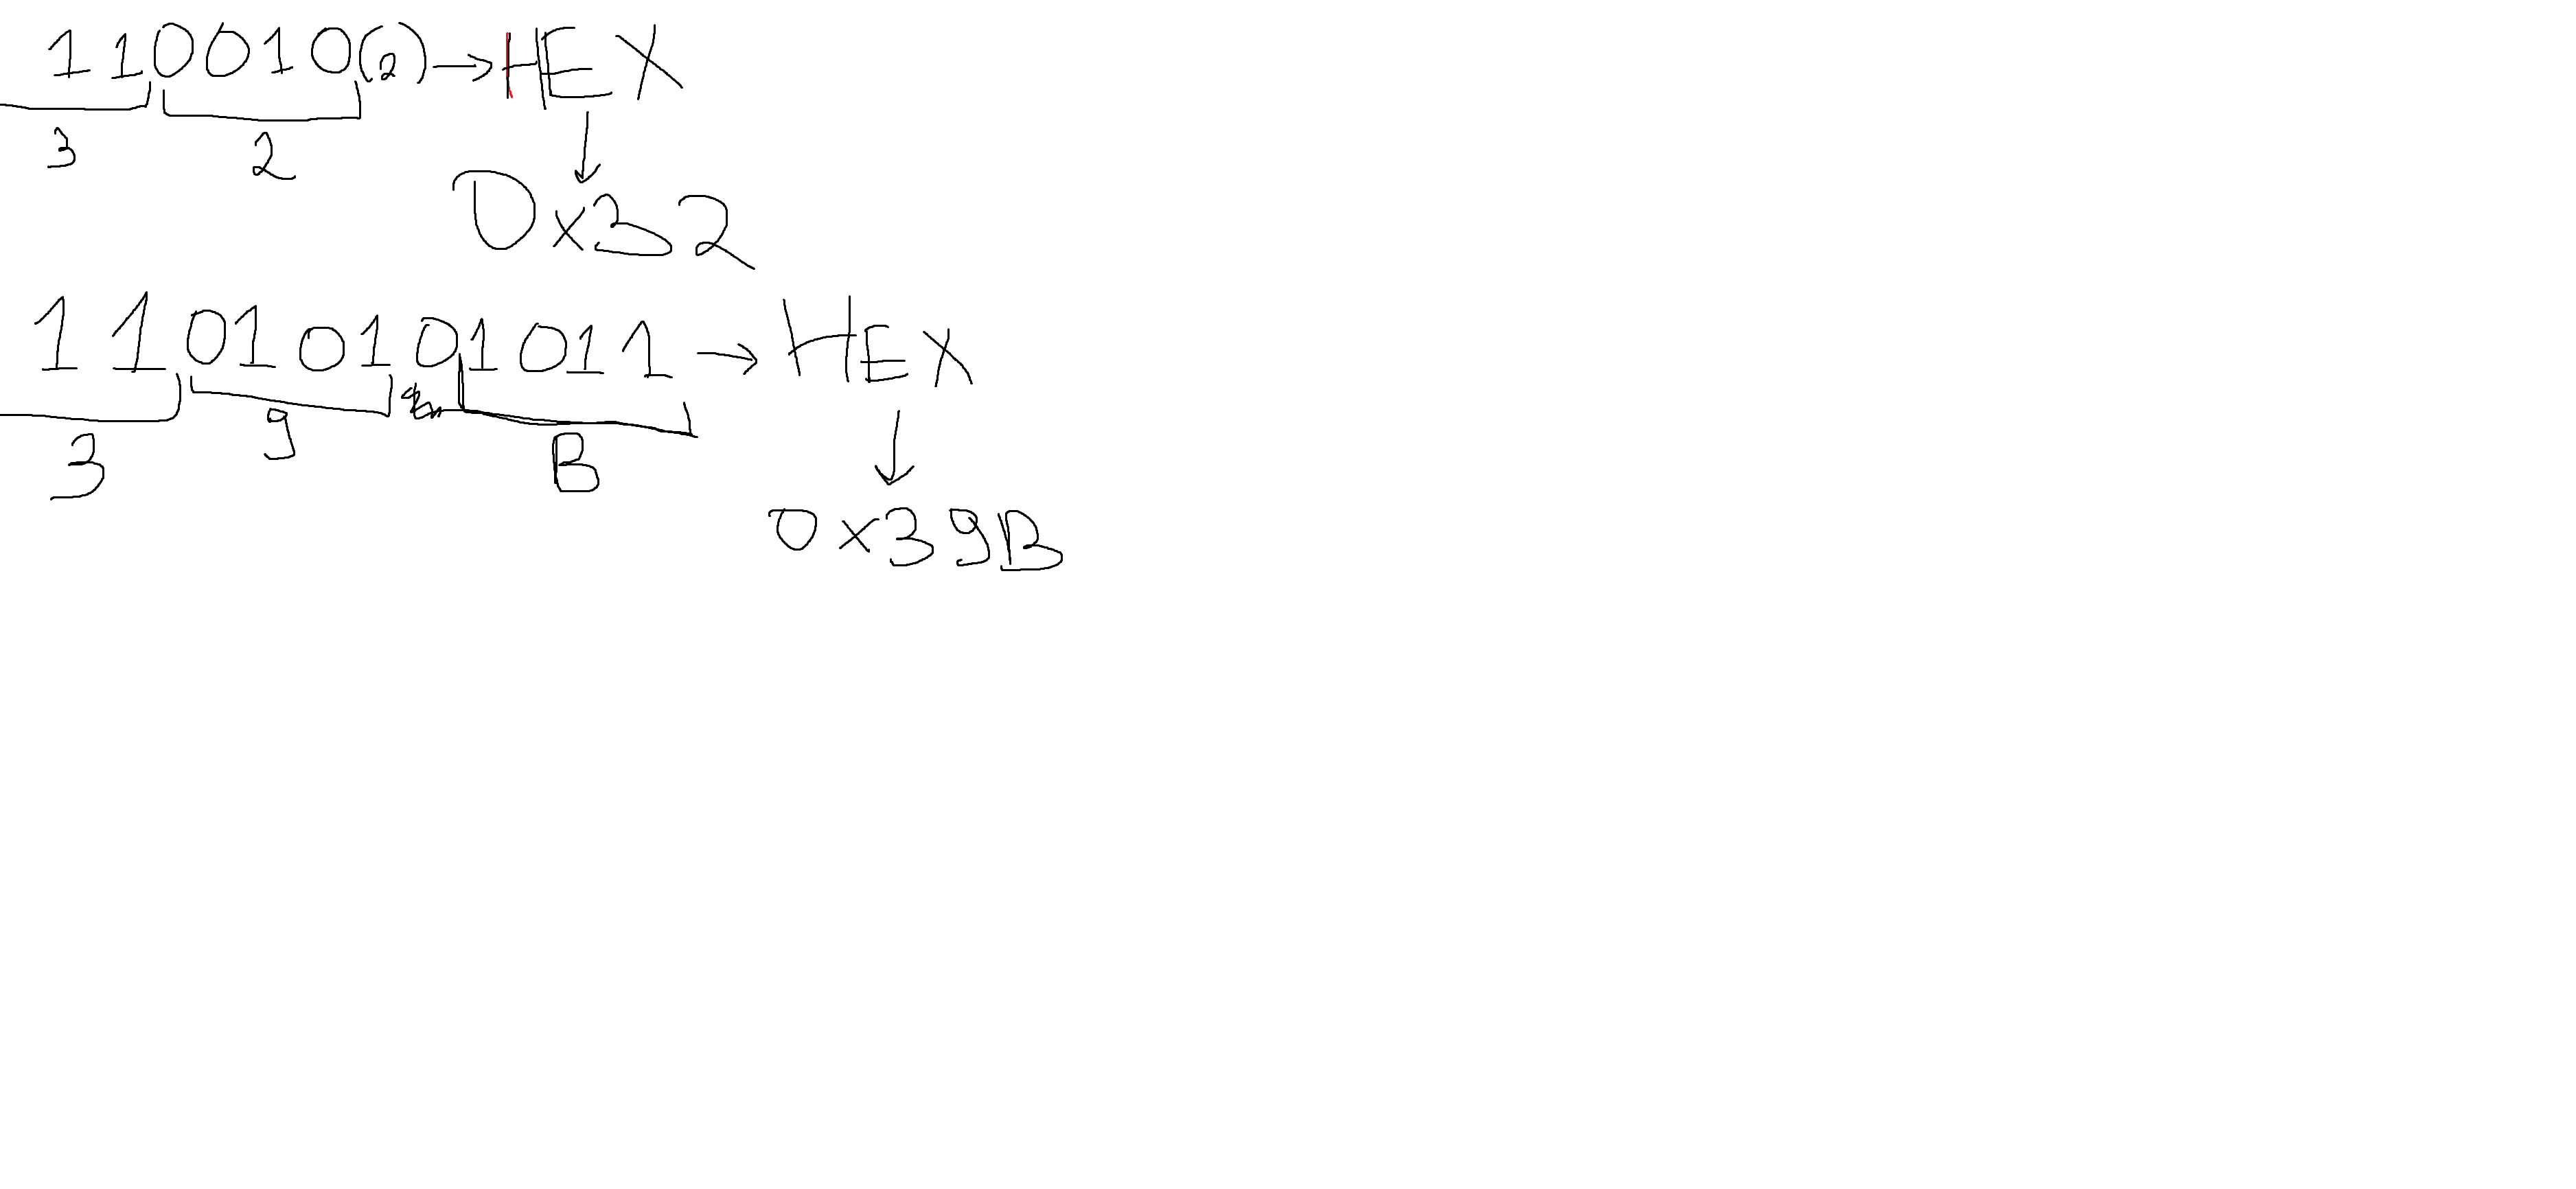 110010(2)→HEX
3 2
↓
0x32
11010101011→HEX
3 9 B
↓
0x39B